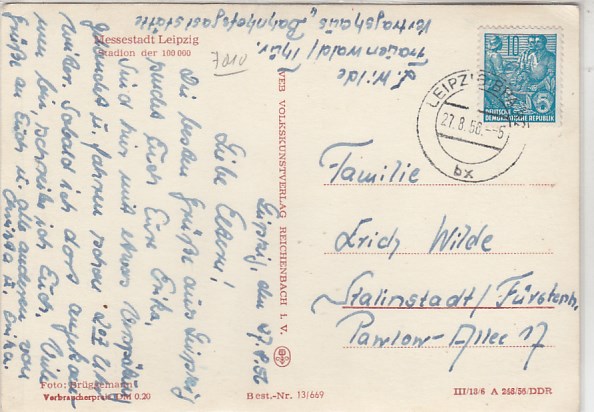 Messestadt Leipzig
Stadion der 100 000
7010
L. Wilde
Frauenwald/Thür.
Vertragshaus "Bahnhofsgaststätte
Leipzig, den 27.8.56
Liebe Eltern!
Die besten Grüße aus Leipzig
sendet Euch Eure Erika.
Sind hier mit etwas Verspätung
gelandet u. fahren schon
weiter. Sobald ich dort angekom-
men bin, schreibe ich Euch. Viele
Grüße an Euch u. alle anderen von
Christa u. Erika.
Foto: Brüggemann
Verbraucherpreis DM 0.20
VEB VOLKSKUNSTVERLAG REICHENBACH i. V.
Best.-Nr. 13/669
LEIPZIG
27.8.56.--5
bx
DEUTSCHE
DEMOKRATISCHE REPUBLIK
5
Familie
Erich Wilde
Stalinstadt/Fürstenb.
Pawlow-Allee 17
III/18/6 A 246/56/DDR